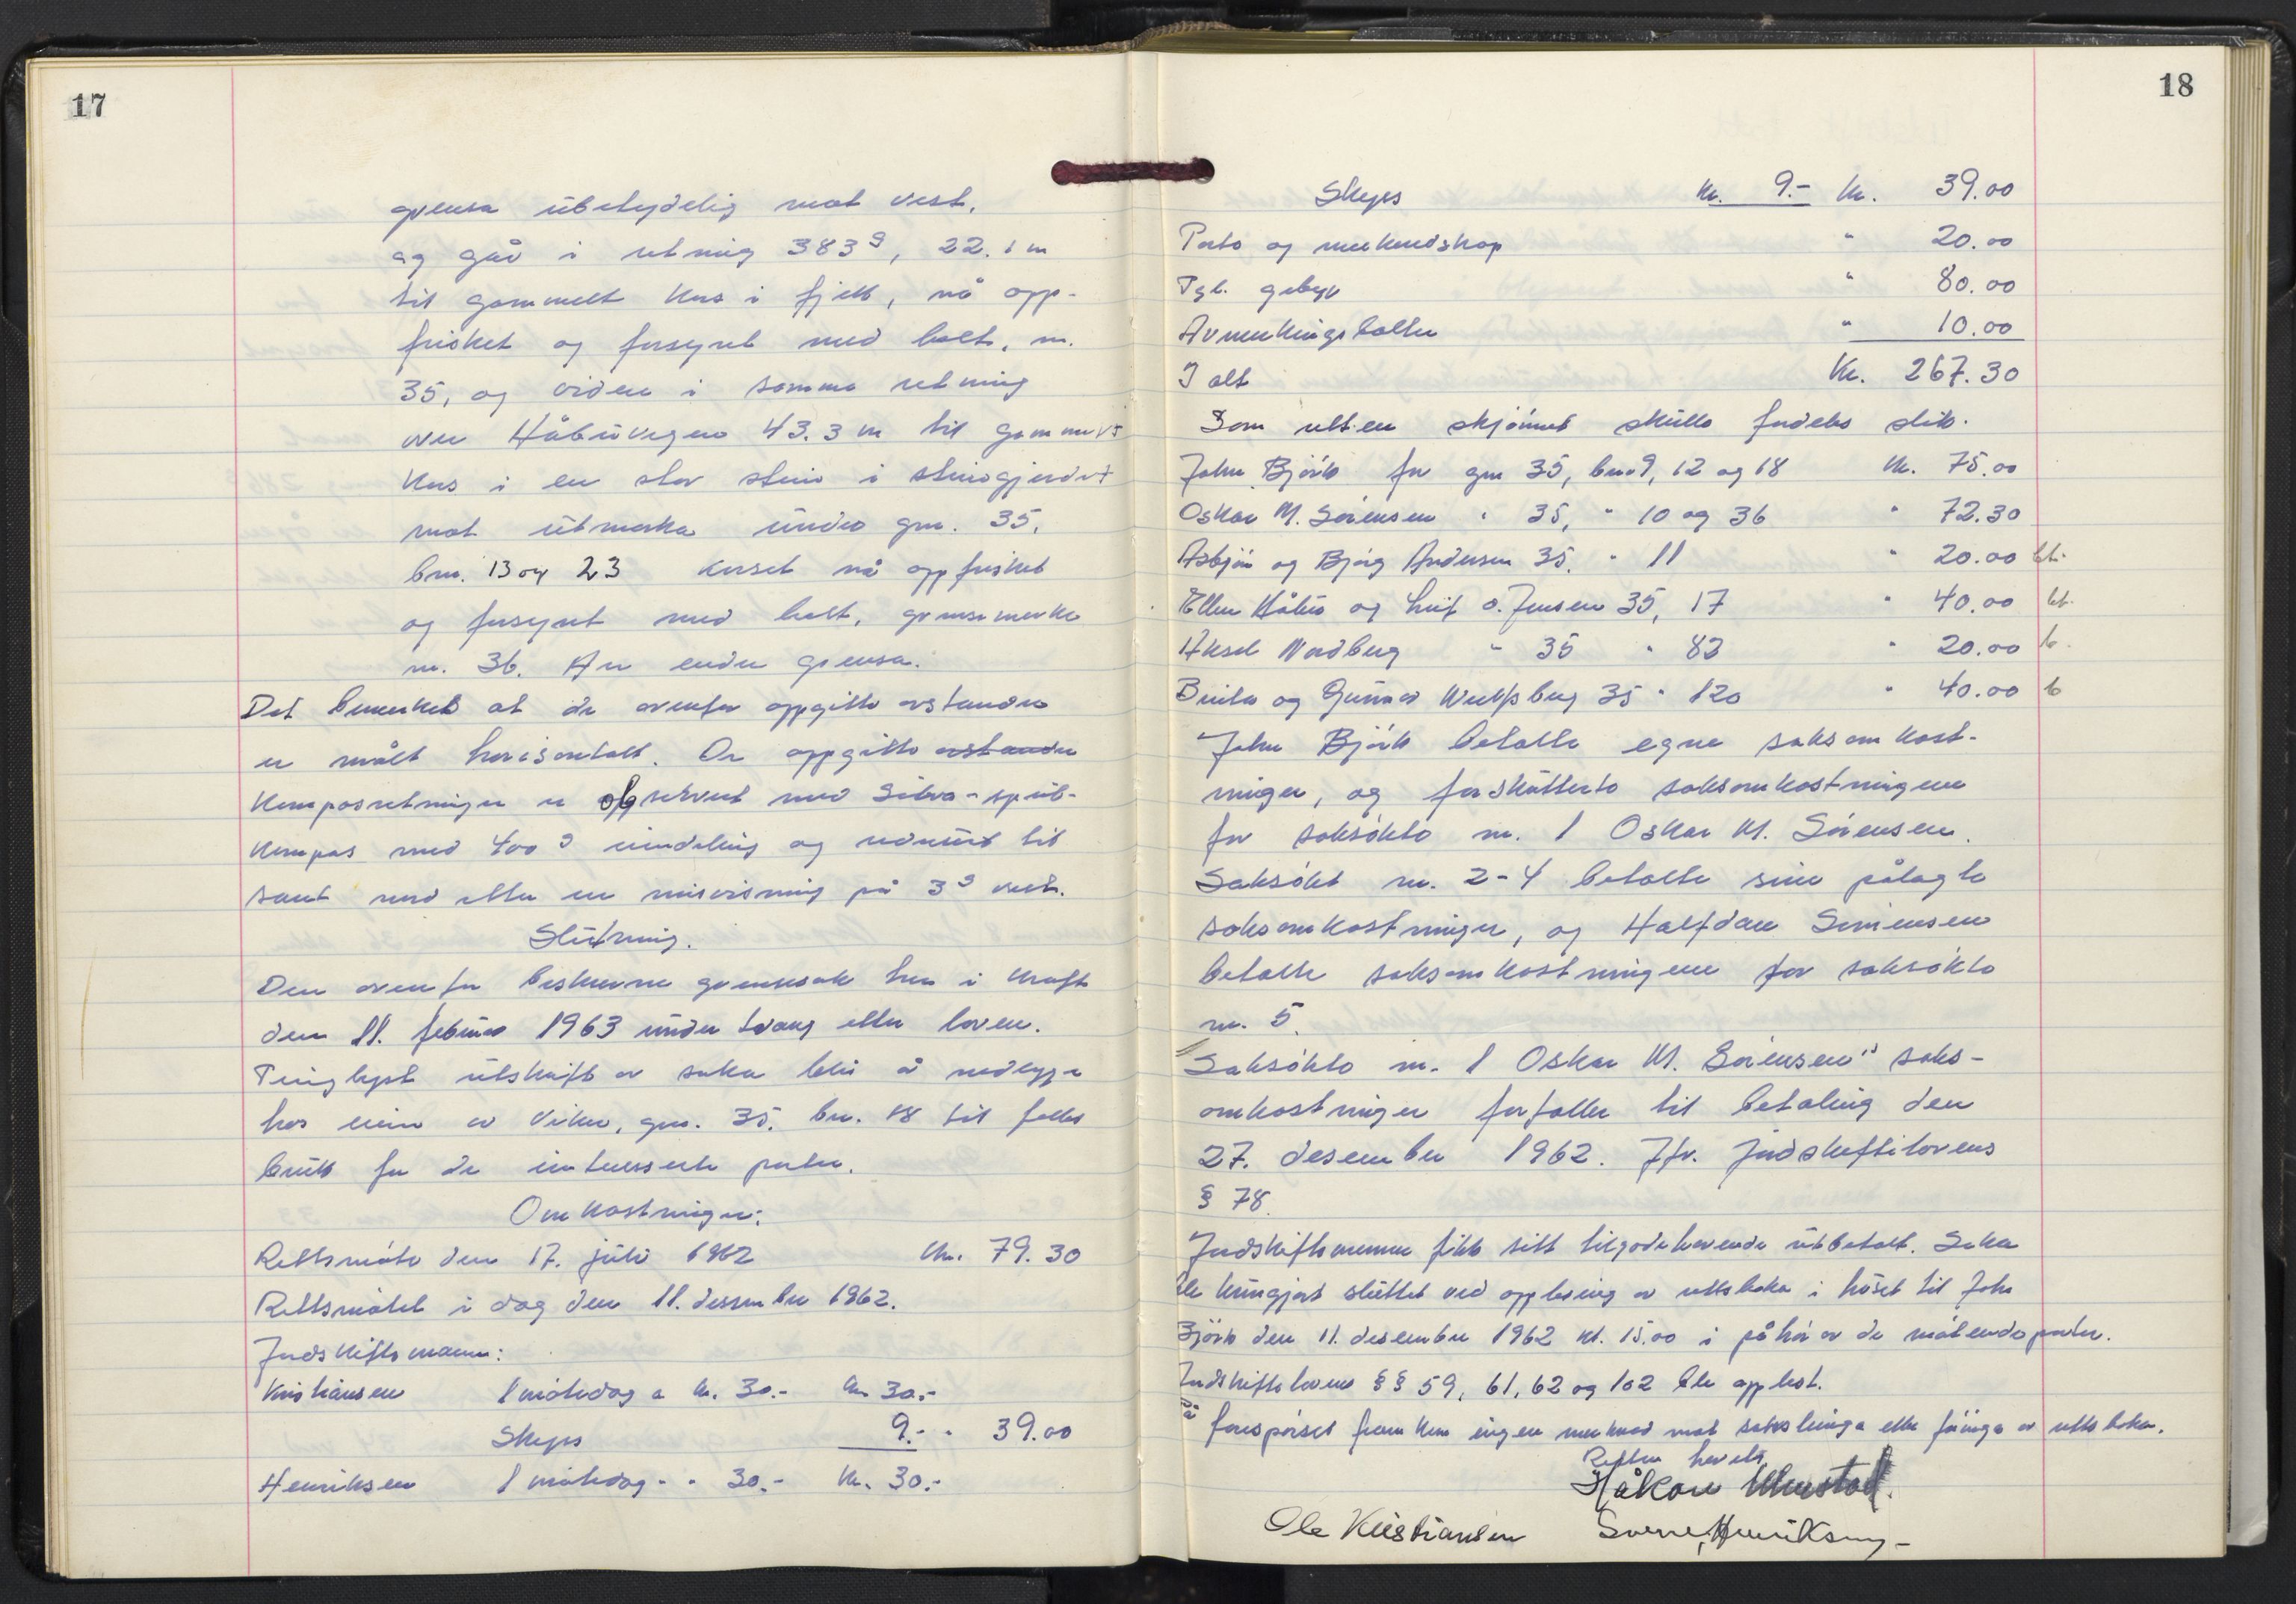 17
grensa ubetydelig mot vest,
og går i retning 383g, 22.1 m
til gammelt kors i fjell, nå opp-
frisket og forsynt med bolt, nr.
35, og videre i samme retning
over Håbuvegen 43.3 m til gammelt
kors i en stor stein i steingjerdet
mot utmarka under gnr. 35,
bnr. 13 og 23 korset nå oppfrisket
og forsynt med bolt, grensemerke
nr. 36. Her ender grensa.
Det bemerkes at de ovenfor oppgitte avstander
er målt horisontalt. De oppgitte avstander
kompasretninger er observert med Silva-sprit-
kompas med 400g inndeling og redusert til
sant nord etter en misvisning på 3g vest.
Slutning.
Den ovenfor beskrevne grensesak trer i kraft
den 11. februar 1963 under tvang etter loven.
Tinglyst utskrift av saka blir å nedlegge
hos eieren av Viken, gnr. 35, bnr. 18 til felles
bruk for de interesserte parter.
Omkostninger:
Rettsmøte den 17. juli 1962 kr. 79.30
Rettsmøtet i dag den 11. desember 1962.
Jordskiftemenn:
Kristiansen 1 møtedag a kr. 30.- kr. 30.-
Skyss 9.- " 39.00
Henriksen 1 møtedag - " 30.- kr. 30.-
18
Skyss kr. 9.- kr. 39.00
Porto og merkeredskap " 20.00
Tgl. gebyr " 80.00
Avmerkingsbolter " 10.00
I alt Kr. 267.30
Som retten skjønnet skulle fordeles slik.
John Bjørk for gnr 35, bnr 9, 12 og 18 kr. 75.00
Oskar M. Sørensen " 35, " 10 og 36 " 72.30
Asbjørn og Bjørg Andersen 35. " 11 " 20.00 bt.
Ellen Håbu og Leif O. Jensen 35, 17 " 40.00 bt.
Aksel Nordberg " 35 " 82 " 20.00 b.
Berta og Gunnar Wulfsberg 35 " 120 " 40.00 b
John Bjørk betalte egne saksomkost-
ninger, og forskutterte saksomkostningene
for saksøkte nr. 1 Oskar M. Sørensen.
Saksøkt nr. 2-4 betalte sine pålagte
saksomkostninger, og Halfdan Simensen
betalte saksomkostningene for saksøkte
nr. 5.
Saksøkte nr. 1 Oskar M. Sørensen's saks-
omkostninger forfaller til betaling den
27. desember 1962. Jfr. Jordskiftelovens
§ 78.
Jordskiftemennene fikk sitt tilgodehavende utbetalt. Saka
ble kunngjort sluttet ved opplesning av rettsboka i huset til John
Bjørk den 11. desember 1962 kl. 15.00 i påhør av de møtende parter.
Jordskiftelovens §§ 59, 61, 62 og 102 ble opplest.
På forespørsel fremkom ingen merknad mot saksleiinga eller føringa av rettsboka.
Retten hevet.
Håkon
Ole Kristiansen Sverre Henriksen